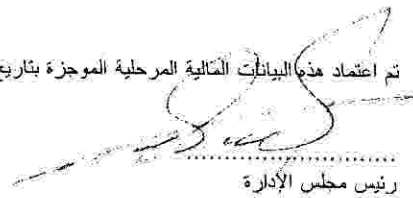 تم اعتماد هذه البيانات المالية المرحلية الموجزة بتاريخ
رئيس مجلس الإدارة